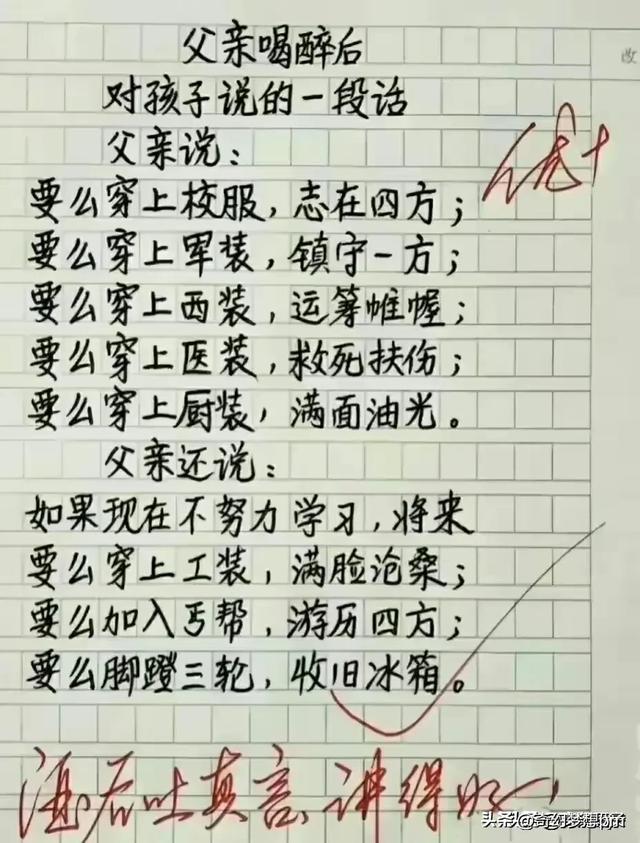 父亲喝醉后
对孩子说的一段话
父亲说：
优+
要么穿上校服，志在四方；
要么穿上军装，镇守一方；
要么穿上西装，运筹帷幄；
要么穿上医装，救死扶伤；
要么穿上厨装，满面油光。
父亲还说：
如果现在不努力学习，将来
要么穿上工装，满脸沧桑；
要么加入丐帮，游历四方；
要么脚蹬三轮，收旧冰箱。
酒后吐真言，讲得好！
改
头条